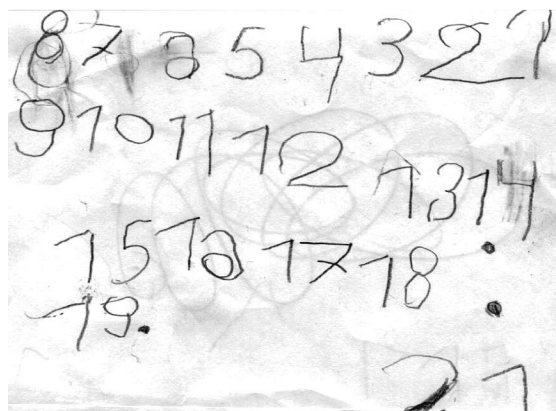 8 7 6 5 4 3 2 1
9 10 11 12
13 14
15 16 17 18
19.
21